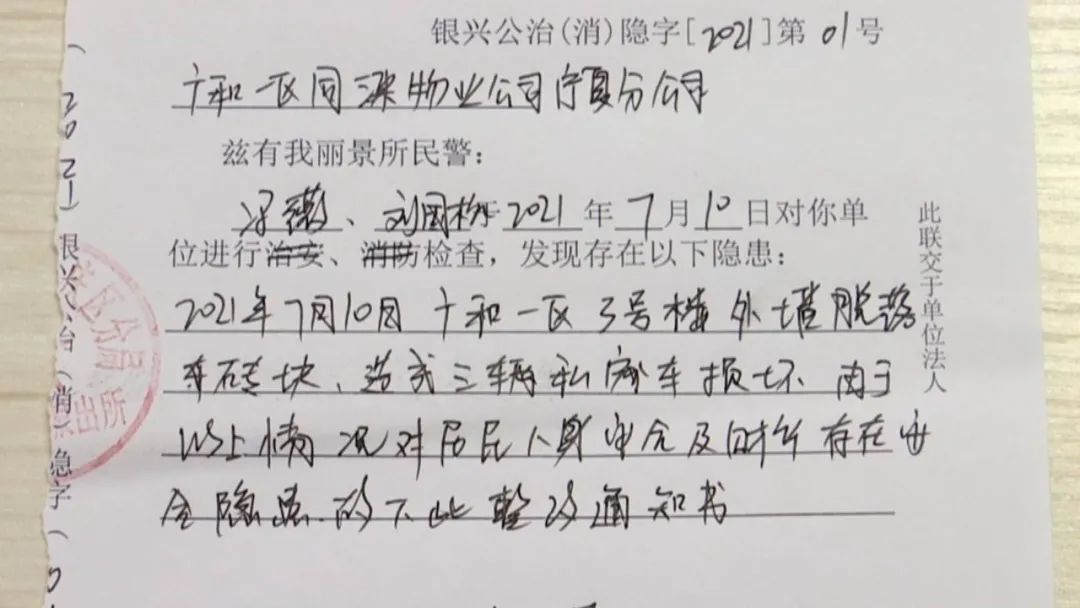 银兴公治(消)隐字[2021]第 01号
十和一区同涞物业公司宁夏分公司
兹有我丽景所民警：
冯薇、刘国栋 2021 年 7 月 10 日对你单
位进行治安、消防检查，发现存在以下隐患：
2021年7月10日 十和一区3号楼外墙脱落
砖块、造成三辆私家车损坏 由于
以上情况对居民人身安全及财产存在安
全隐患.故下此整改通知书
此联交于单位法人
(2021)银兴公治(消)隐字(0
区分局
出所